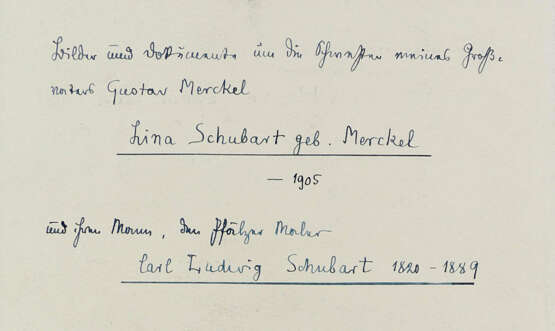 Bilder und Dokumente um die Schwester meines Groß-
vaters Gustav Merckel
Lina Schubart geb. Merckel
— 1905
und ihren Mann, den Pfälzer Maler
Carl Ludwig Schubart 1820 - 1889